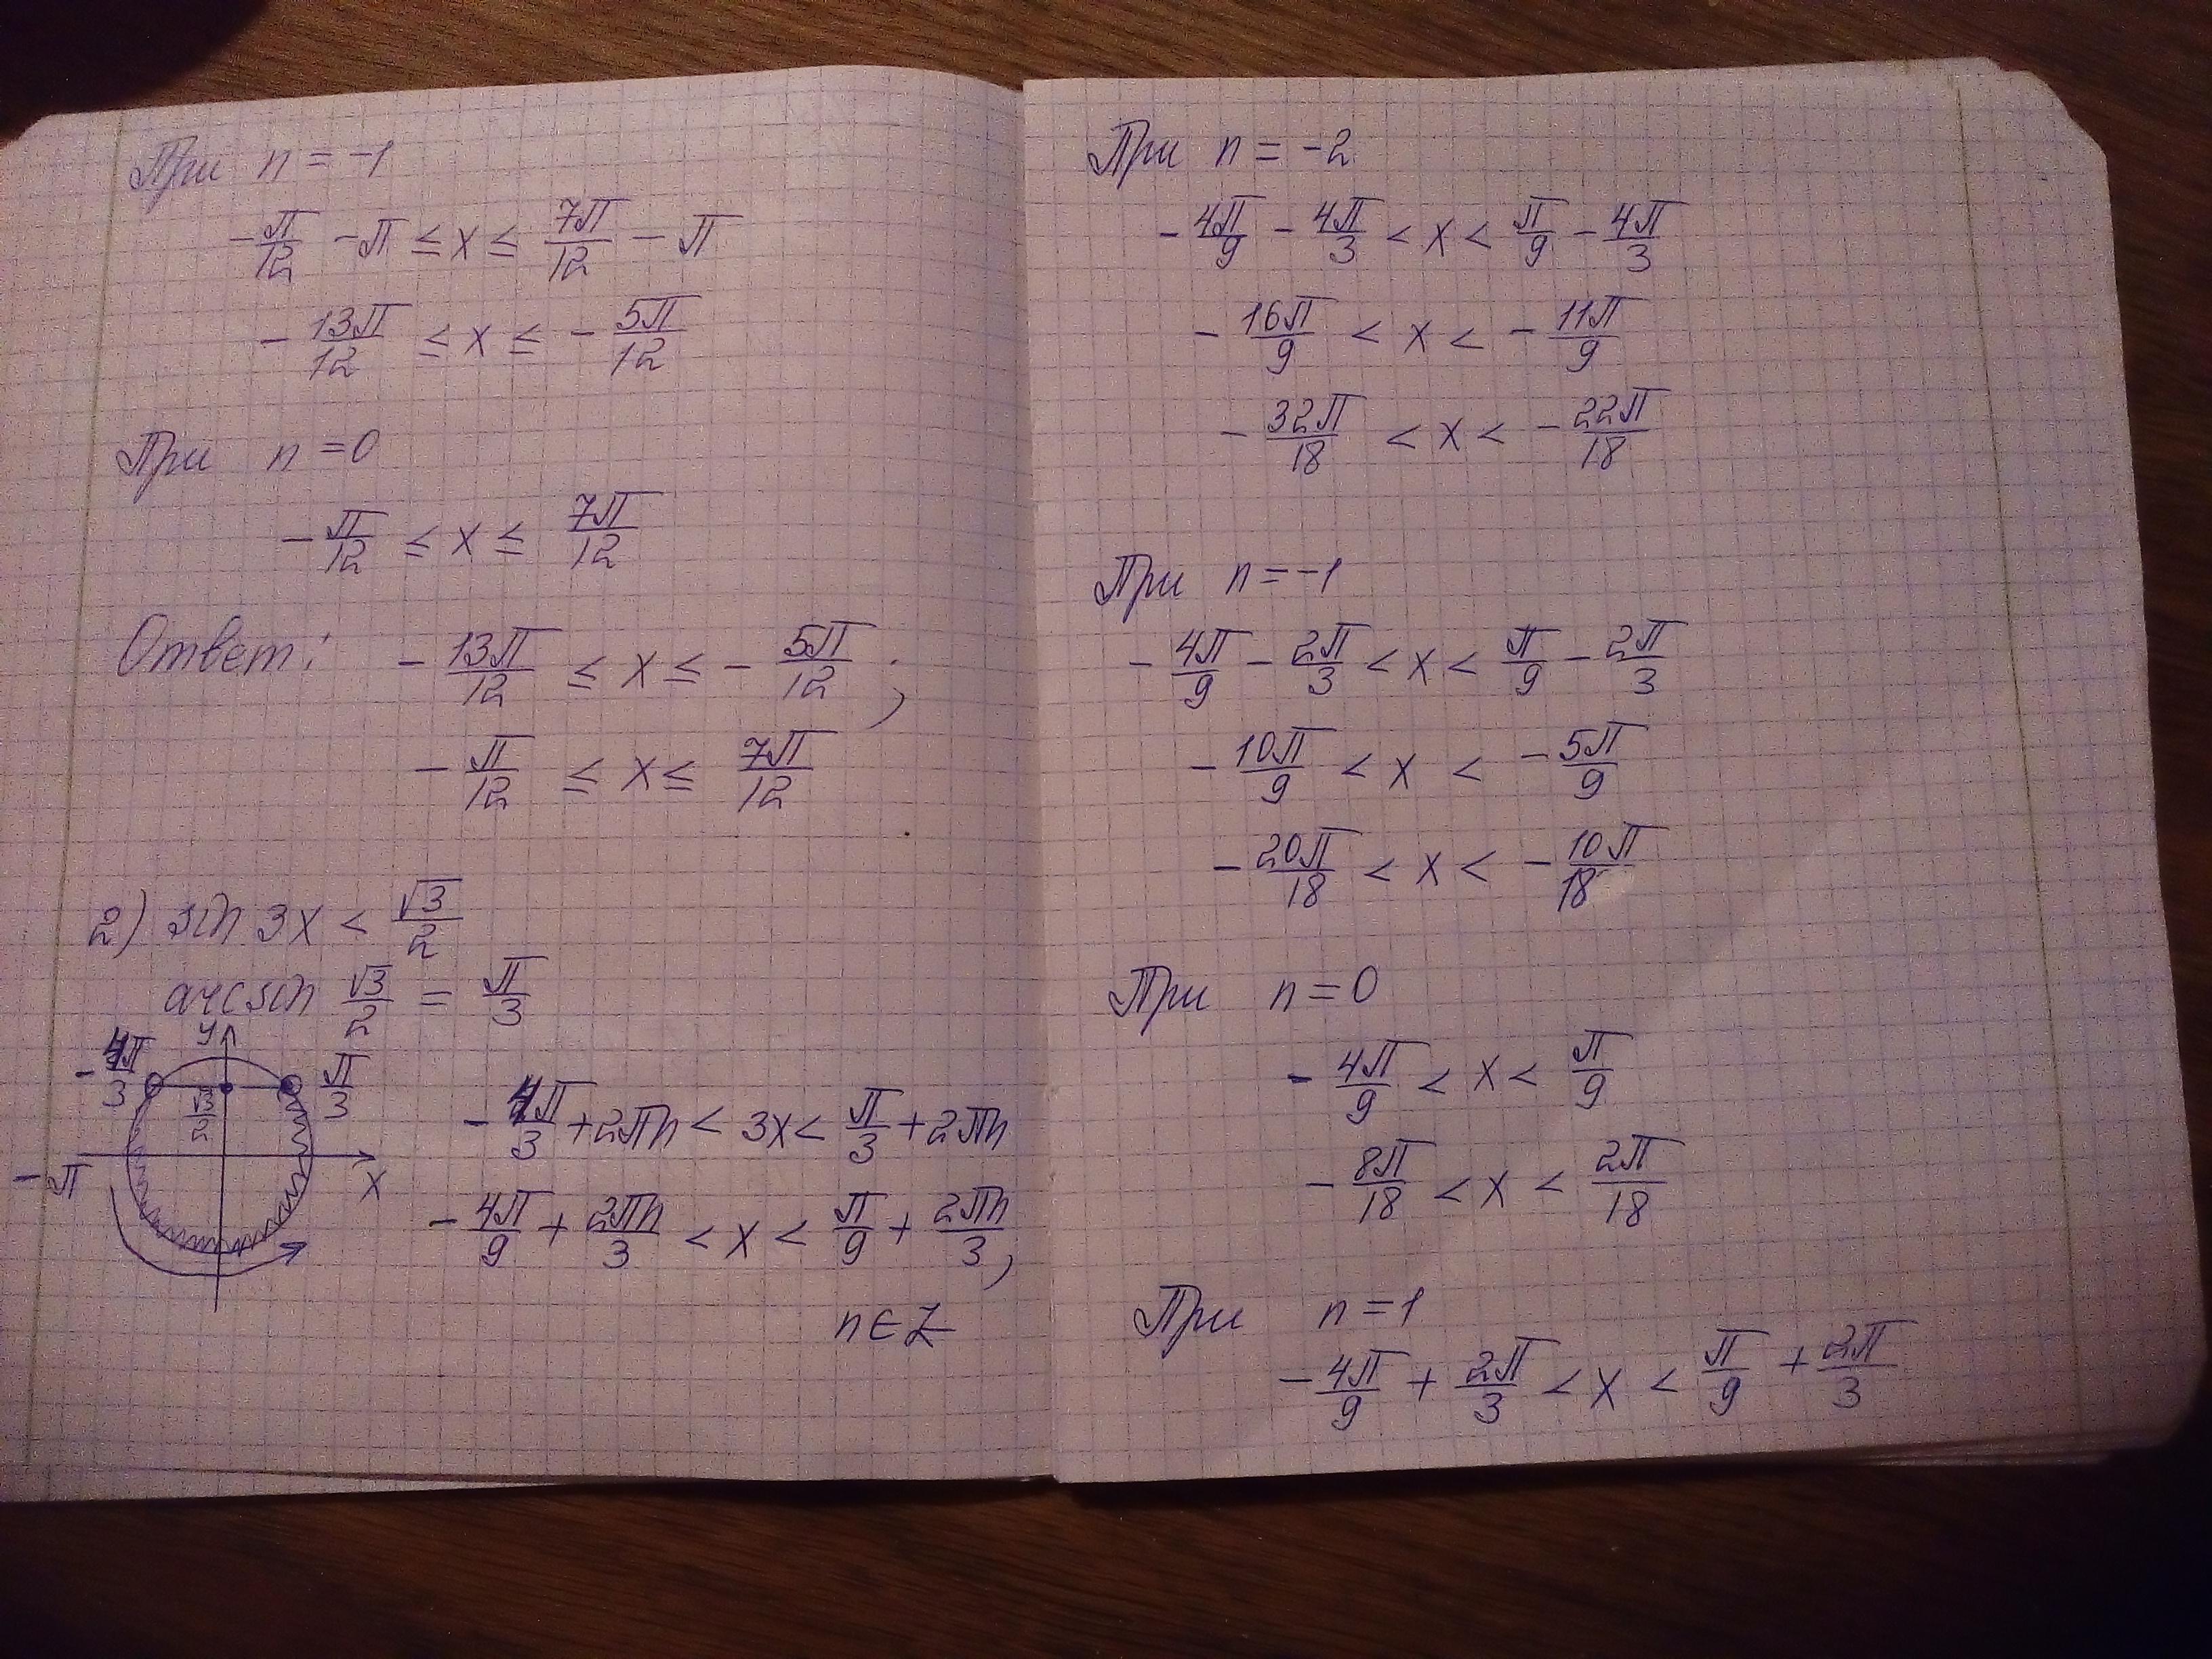 При n = -1
-π/12 - π ≤ x ≤ 7π/12 - π
-13π/12 ≤ x ≤ -5π/12
При n = 0
-π/12 ≤ x ≤ 7π/12
Ответ: -13π/12 ≤ x ≤ -5π/12;
-π/12 ≤ x ≤ 7π/12
2) sin 3x < √3/2
arcsin √3/2 = π/3
y
-4π/3
π/3
√3/2
-π
x
-4π/3 + 2πn < 3x < π/3 + 2πn
-4π/9 + 2πn/3 < x < π/9 + 2πn/3,
n ∈ Z
При n = -2
-4π/9 - 4π/3 < x < π/9 - 4π/3
-16π/9 < x < -11π/9
-32π/18 < x < -22π/18
При n = -1
-4π/9 - 2π/3 < x < π/9 - 2π/3
-10π/9 < x < -5π/9
-20π/18 < x < -10π/18
При n = 0
-4π/9 < x < π/9
-8π/18 < x < 2π/18
При n = 1
-4π/9 + 2π/3 < x < π/9 + 2π/3